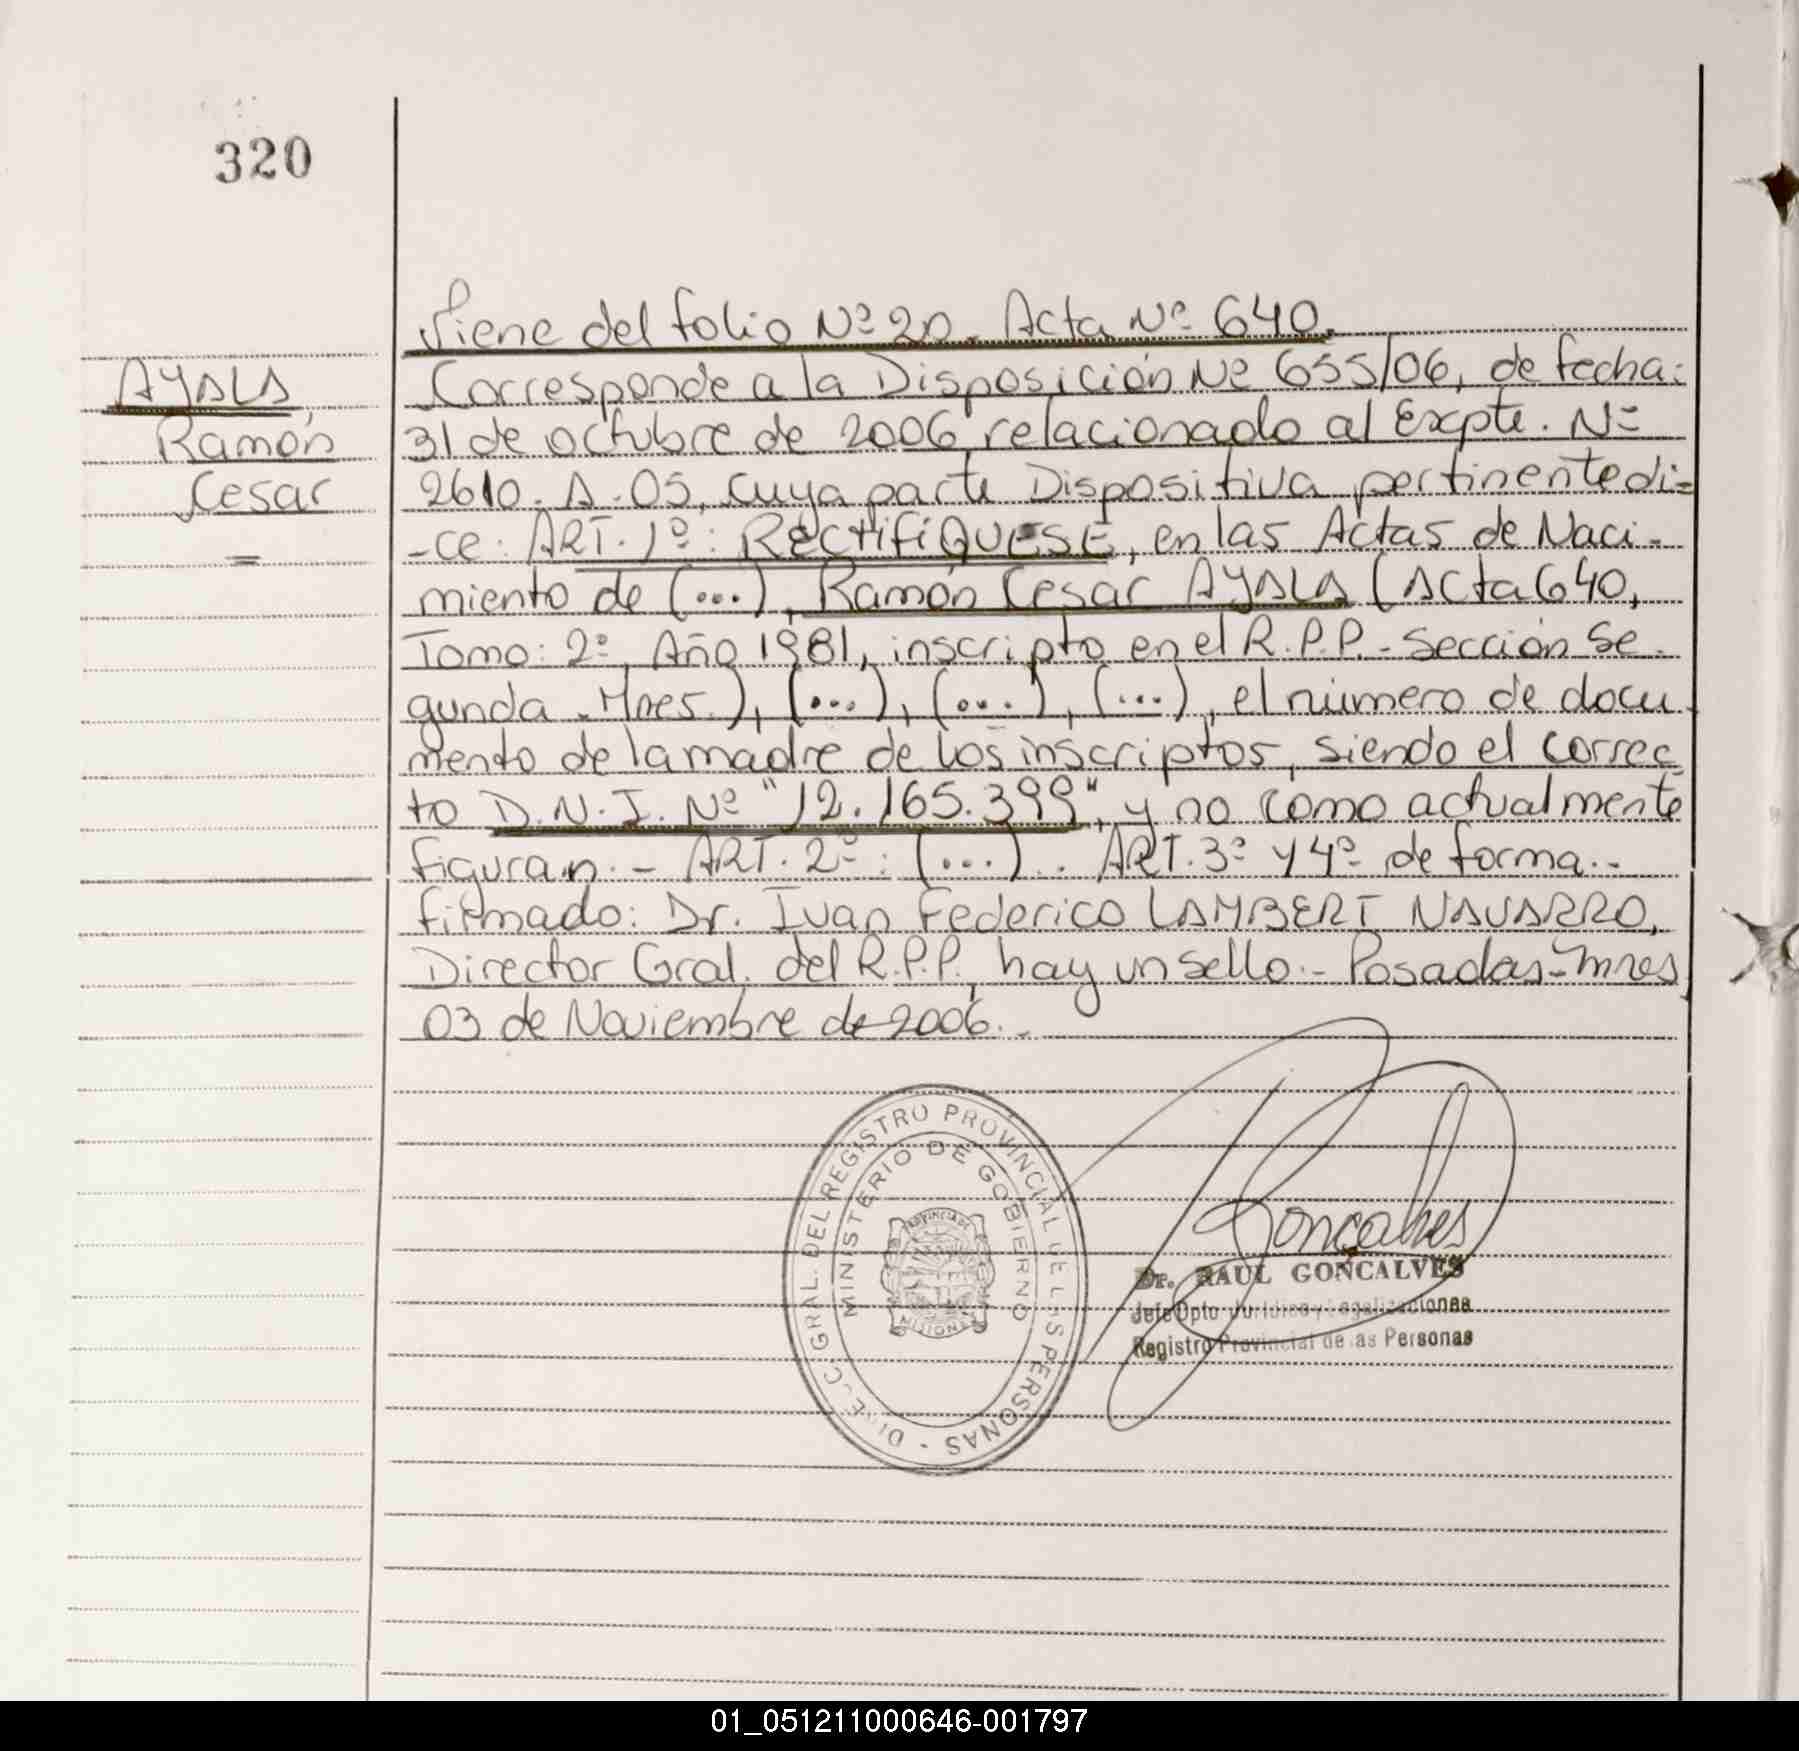 320
Viene del folio Nº 20. Acta Nº 640.
AYALA,
Ramón
Cesar
=
Corresponde a la Disposición Nº 655/06, de fecha:
31 de octubre de 2006 relacionado al Expte. Nº
2610. A. 05, cuya parte Dispositiva pertinente di=
-ce: ART. 1º: RECTIFIQUESE, en las Actas de Naci-
miento de (...), Ramón Cesar AYALA (Acta 640,
Tomo: 2º, Año 1981, inscripto en el R.P.P. - Sección Se-
gunda - Mnes.), (...), (...), (...), el número de docu-
mento de la madre de los inscriptos, siendo el correc
to D.N.I. Nº "12.165.399", y no como actualmente
figuran. - ART. 2º: (...). ART. 3º y 4º de forma.-
firmado: Dr. Ivan Federico LAMBERT NAVARRO,
Director Gral. del R.P.P., hay un sello.- Posadas-Mnes,
03 de Noviembre de 2006.-
DIRECC. GRAL. DEL REGISTRO PROVINCIAL DE LAS PERSONAS -
MINISTERIO DE GOBIERNO
PROVINCIA DE
MISIONES
Goncalves
Dr. RAUL GONCALVES
Jefe Dpto Jurídico y Legalizaciones
Registro Provincial de las Personas
01_051211000646-001797